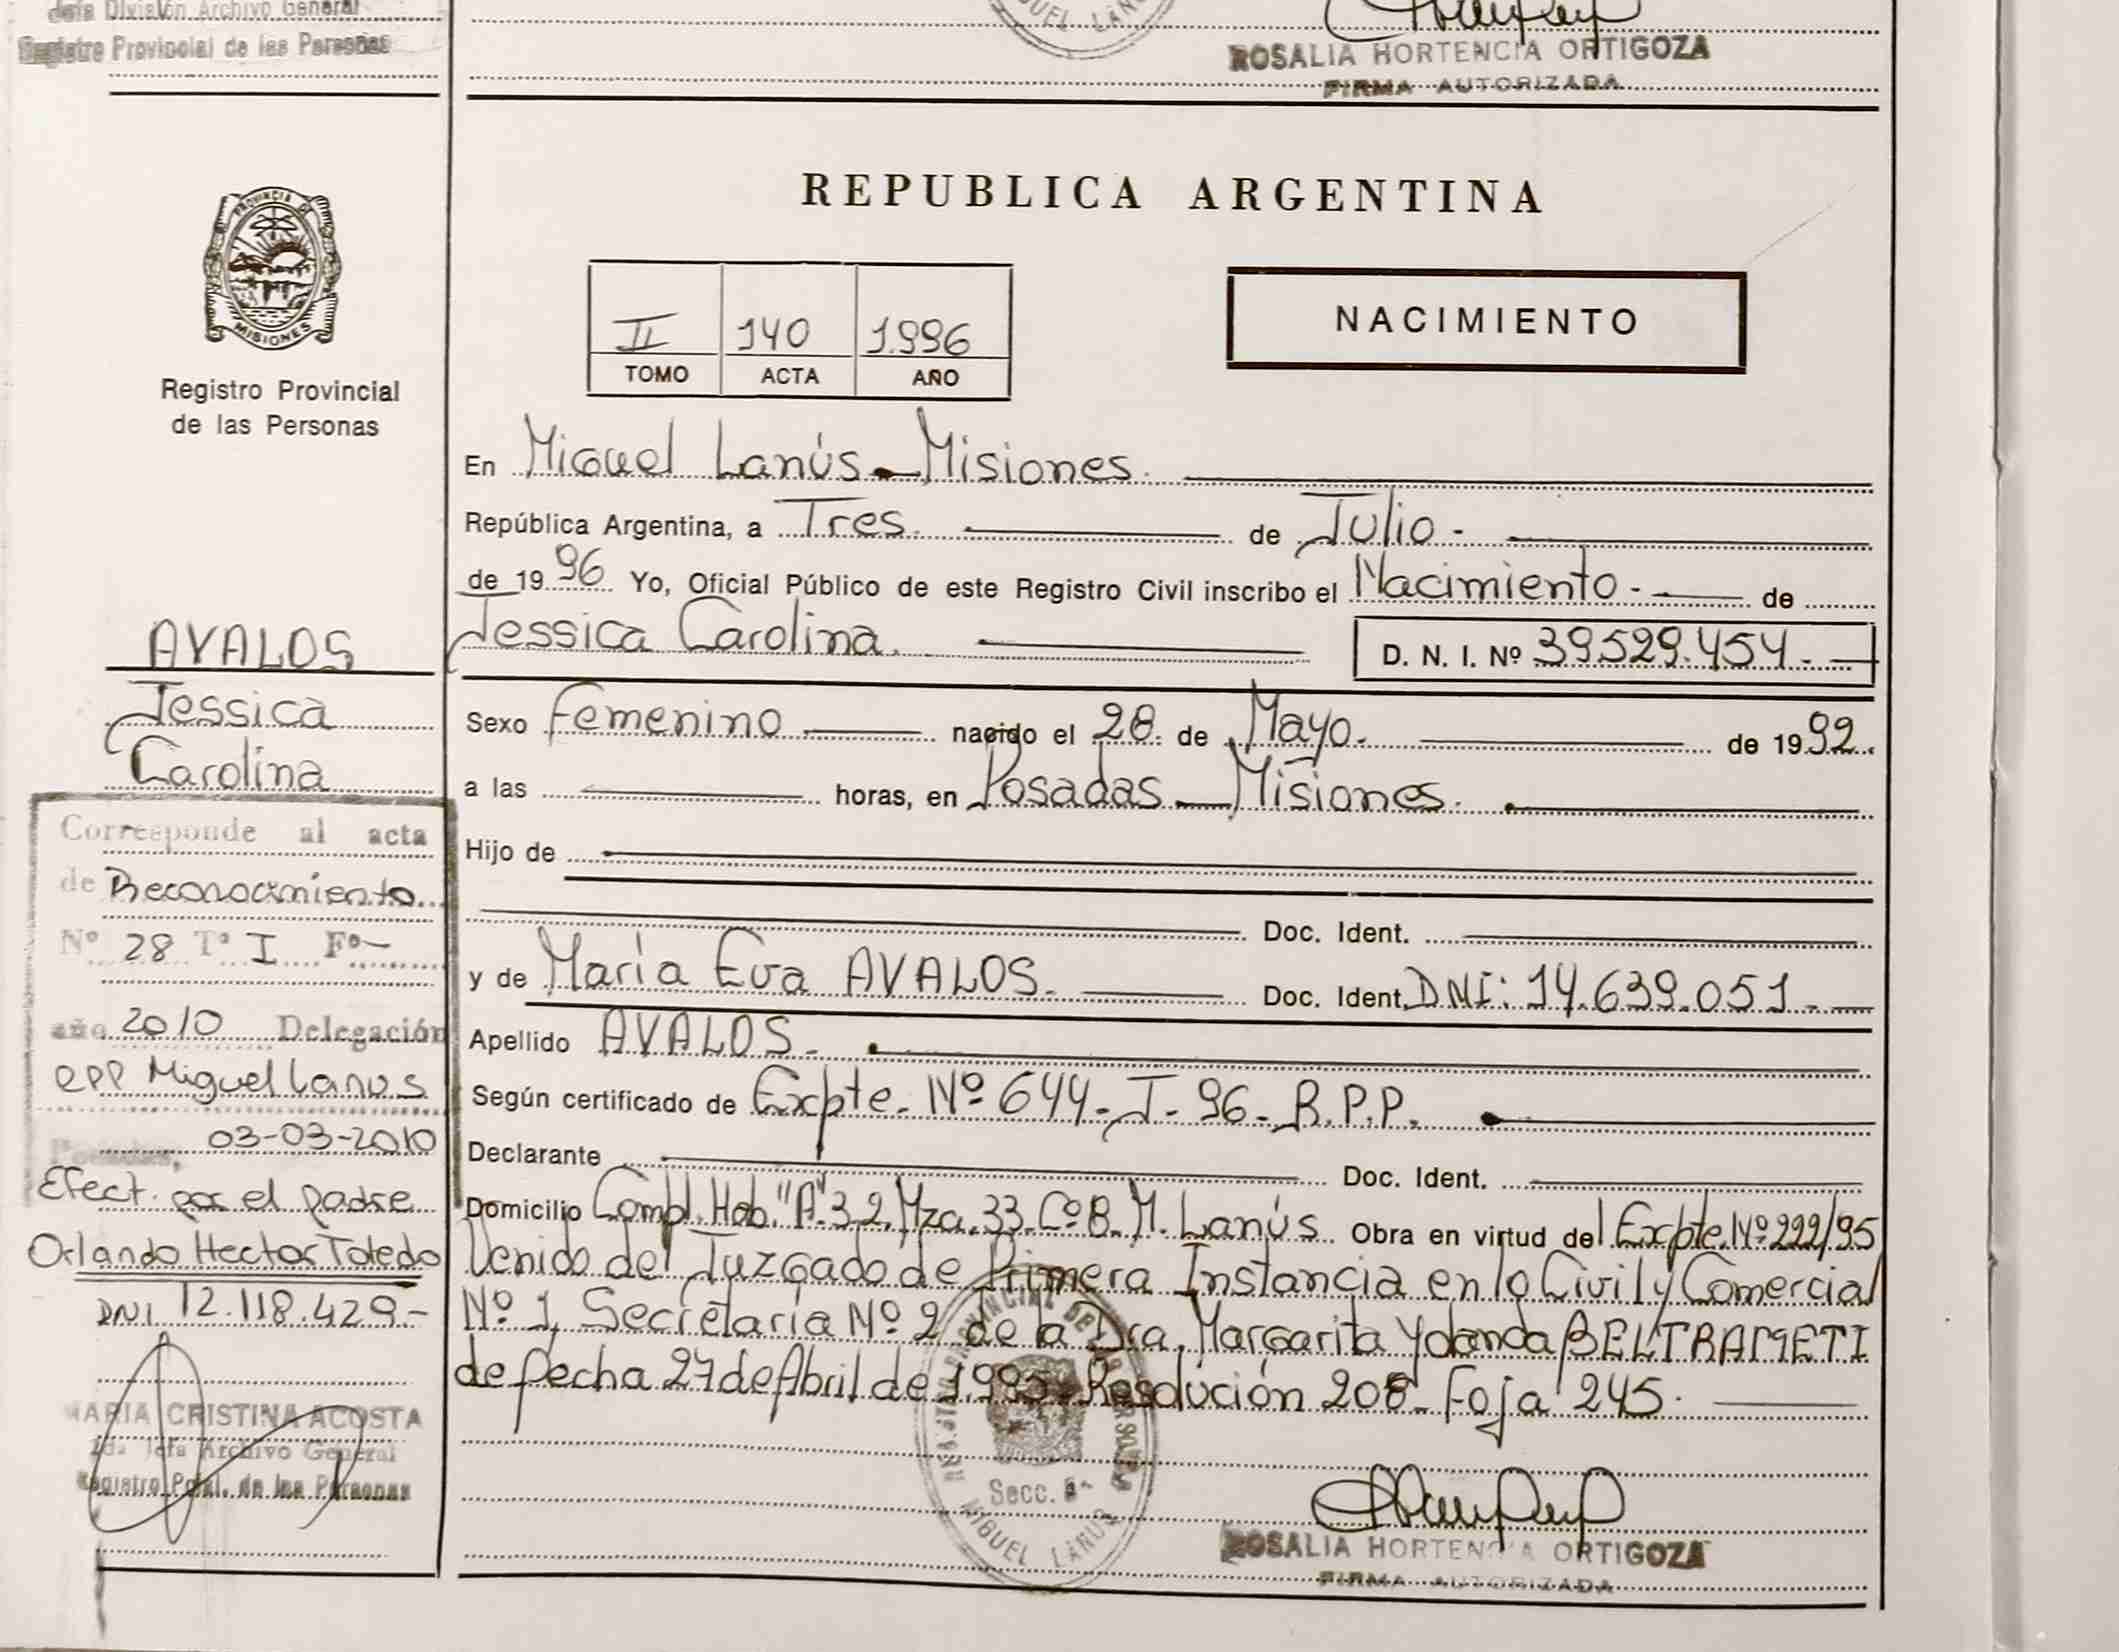 Jefa División Archivo General
Registro Provincial de las Personas
MIGUEL LANUS
ROSALIA HORTENCIA ORTIGOZA
FIRMA AUTORIZADA
PROVINCIA DE
MISIONES
Registro Provincial
de las Personas
AVALOS
Jessica
Carolina
Corresponde al acta
de Reconocimiento
Nº 28 Tº I Fº -
año 2010 Delegación
RPP Miguel Lanus
Posadas, 03-03-2010
Efect. por el padre
Orlando Hector Toledo
DNI 12.118.429.-
MARIA CRISTINA ACOSTA
2da Jefa Archivo General
Registro Pcial. de las Personas
REPUBLICA ARGENTINA
II 140 1.996
TOMO ACTA AÑO
NACIMIENTO
En Miguel Lanús - Misiones.
República Argentina, a Tres. de Julio -
de 1996 Yo, Oficial Público de este Registro Civil inscribo el Nacimiento - de
Jessica Carolina. D. N. I. Nº 39.529.454 -
Sexo Femenino nacido el 28 de Mayo. de 1992.
a las horas, en Posadas - Misiones.
Hijo de
Doc. Ident.
y de María Eva AVALOS. Doc. Ident. DNI: 14.639.051.-
Apellido AVALOS.
Según certificado de Expte. Nº 644-J-96-R.P.P.
Declarante Doc. Ident.
Domicilio Compl. Hab. "A" 32 Mza. 33 Cº B. M. Lanús. Obra en virtud del Expte. Nº 222/95
Venido del Juzgado de Primera Instancia en lo Civil y Comercial
Nº 1, Secretaría Nº 2 de la Dra. Margarita Yolanda BELTRAMETI
de fecha 27 de Abril de 1.995. Resolución 208 - Foja 245.
REGISTRO PROVINCIAL DE LAS PERSONAS
Secc.
MIGUEL LANUS
ROSALIA HORTENCIA ORTIGOZA
FIRMA AUTORIZADA